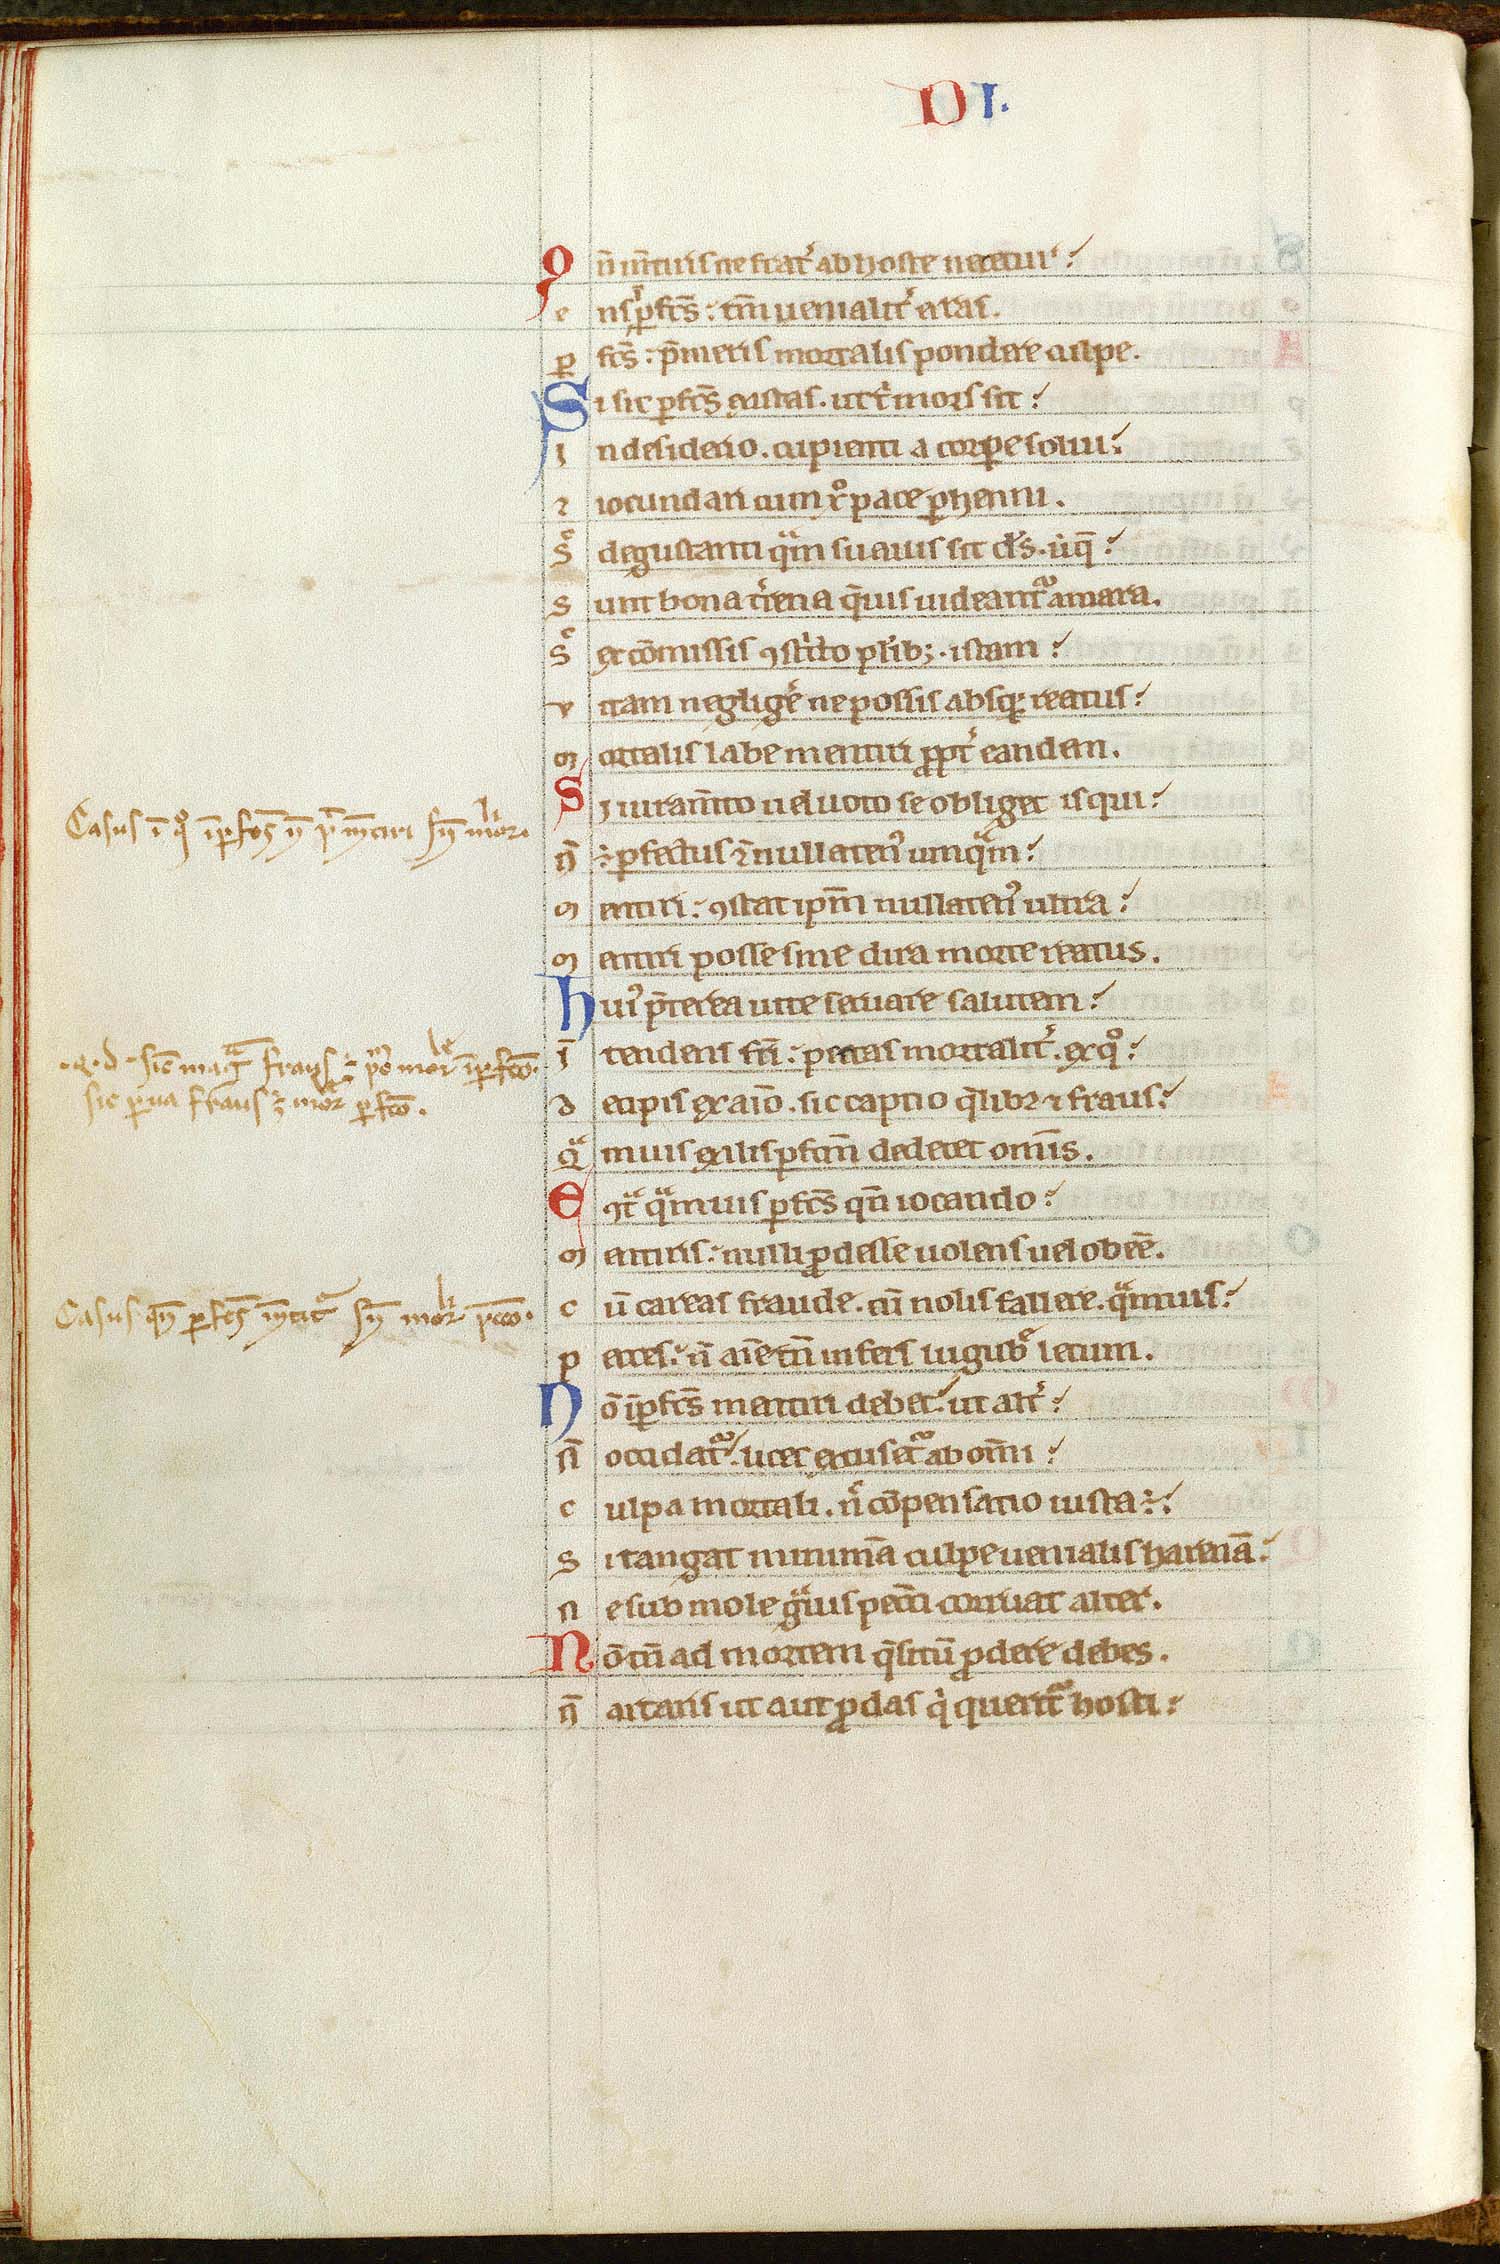 DI.
On̄ m̄tiris ne frat̛ ab hoste necetur:
ens ꝑfc̄s: tm̄ uenialit̛ erras.
ꝑ fc̄s: p̄meris mortalis pondere culpe.
Si sic ꝑfc̄s existas. ut t̛ mors sit:
In desiderio. cupienti a corpe solui:
⁊ iocundari cum xp̄o pace ꝑhenni.
degustanti qᵃm suauis sit dn̄s.
Sunt bona t̛rena q̄uis uideantᷣ amara.
et cōmissis ꝯstricto ꝑlib;. istam:
vitam negligē̛ ne possis absq; reatus:
mortalis labe mentiri ꝓpt̛ eandem.
Si iuram̄to uel uoto se obliget is qui:
n̄ ÷ ꝑfectus qd̄ nullaten᷒ umqᵃm:
mentiri: ꝯstat ip̄m nullaten᷒ ultra:
mentiri posse sine dira morte reatus.
hui᷒ p̄terea uite seruare salutem:
ītendens fr̄i: peccas mortalit̛. ex qᵒ:
decipis ex aīo. sic captio q̄libꝫ ⁊ fraus:
qᵃmuis exilis ꝑfectū dedecet omīs.
Eꝯtᵃ qᵃmuis ꝑfc̄s qn̄ iocando:
mentiris: nulli ꝓdesse uolens uel obēē.
cū careas fraude. cū nolis fallere. qᵃmuis:
pecces: n̄ aīe tn̄ infers lugubᵉ letum.
Nō īꝑfc̄s mentiri debet: ut alt̛:
n̄ occidatᷣ: licet excusetᷣ ab om̄i:
culpa mortali. n̄ cōpensatio iusta ÷:
si tangat minimā culpe uenialis harenā:
ne sub mole gᵃuis pecc̄i corruat alter.
Nō cū ad mortem q̄situ ꝓdere debes.
n̄ artaris ut aut ꝓdas qⁱ queritᷣ hosti:
Casus ī qᵒ īꝑfc̄s n̄ pᵗ m̄tiri sn̄ mor̄li.
.q.d. sic magᵃ fraus ÷ pcc̄o mor̄le īꝑfc̄o.
sic ꝑua fraus ÷ mor̄le ꝑfc̄o.
Casus qn̄ ꝑfc̄s m̄titᷣ sn̄ mor̄li pcc̄o.